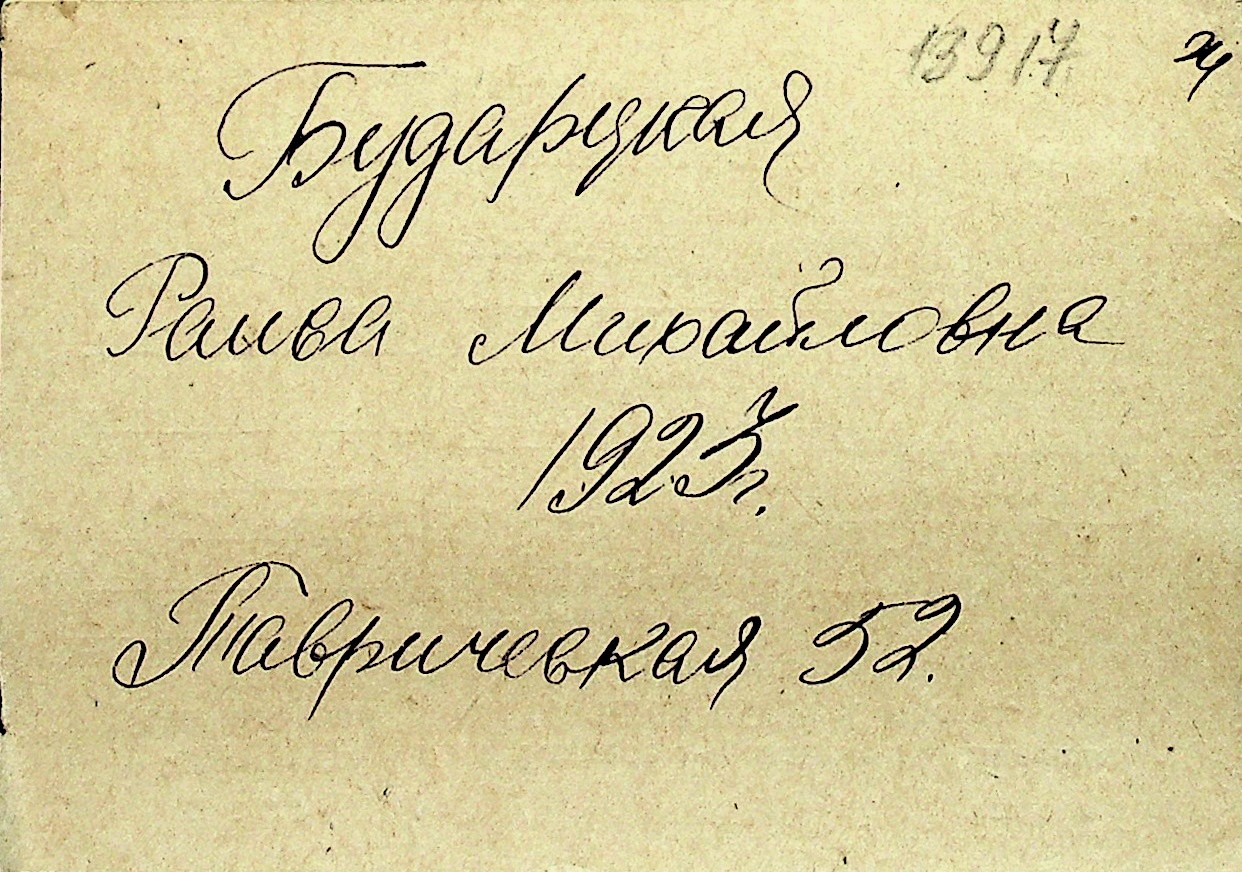 13917
Бударцкая
Раиса Михайловна
1923г.
Таврическая 52.